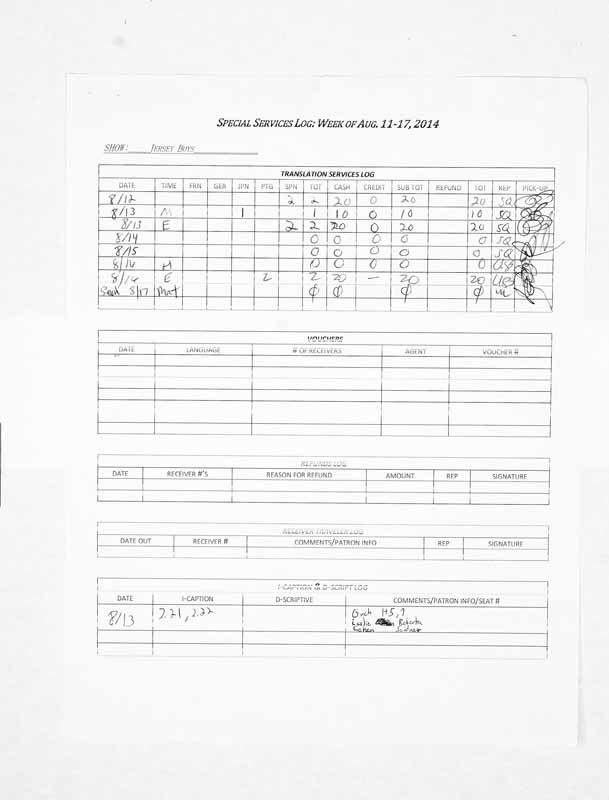 SPECIAL SERVICES LOG: WEEK OF AUG. 11-17, 2014
SHOW: JERSEY BOYS
TRANSLATION SERVICES LOG
DATE TIME FRN GER JPN PTG SPN TOT CASH CREDIT SUB TOT REFUND TOT REP PICK-UP
8/12 2 2 20 0 20 20 SQ
8/13 M 1 1 10 0 10 10 SQ
8/13 E 2 2 20 0 20 20 SQ
8/14 0 0 0 0 0 SQ
8/15 0 0 0 0 0 SQ
8/16 M 0 0 0 0 0
8/16 E 2 2 20 — 20 20
8/17 Mat φ φ φ φ
VOUCHERS
DATE LANGUAGE # OF RECEIVERS AGENT VOUCHER #
REFUNDS LOG
DATE RECEIVER #'S REASON FOR REFUND AMOUNT REP SIGNATURE
RECEIVER TRAVELER LOG
DATE OUT RECEIVER # COMMENTS/PATRON INFO REP SIGNATURE
I-CAPTION & D-SCRIPT LOG
DATE I-CAPTION D-SCRIPTIVE COMMENTS/PATRON INFO/SEAT #
8/13 2.21, 2.22 Orch H5,7
Leslie Roberta